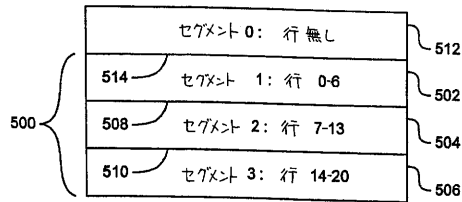 セグメント 0: 行 無し
512
514
セグメント 1: 行 0-6
502
500
508
セグメント 2: 行 7-13
504
510
セグメント 3: 行 14-20
506